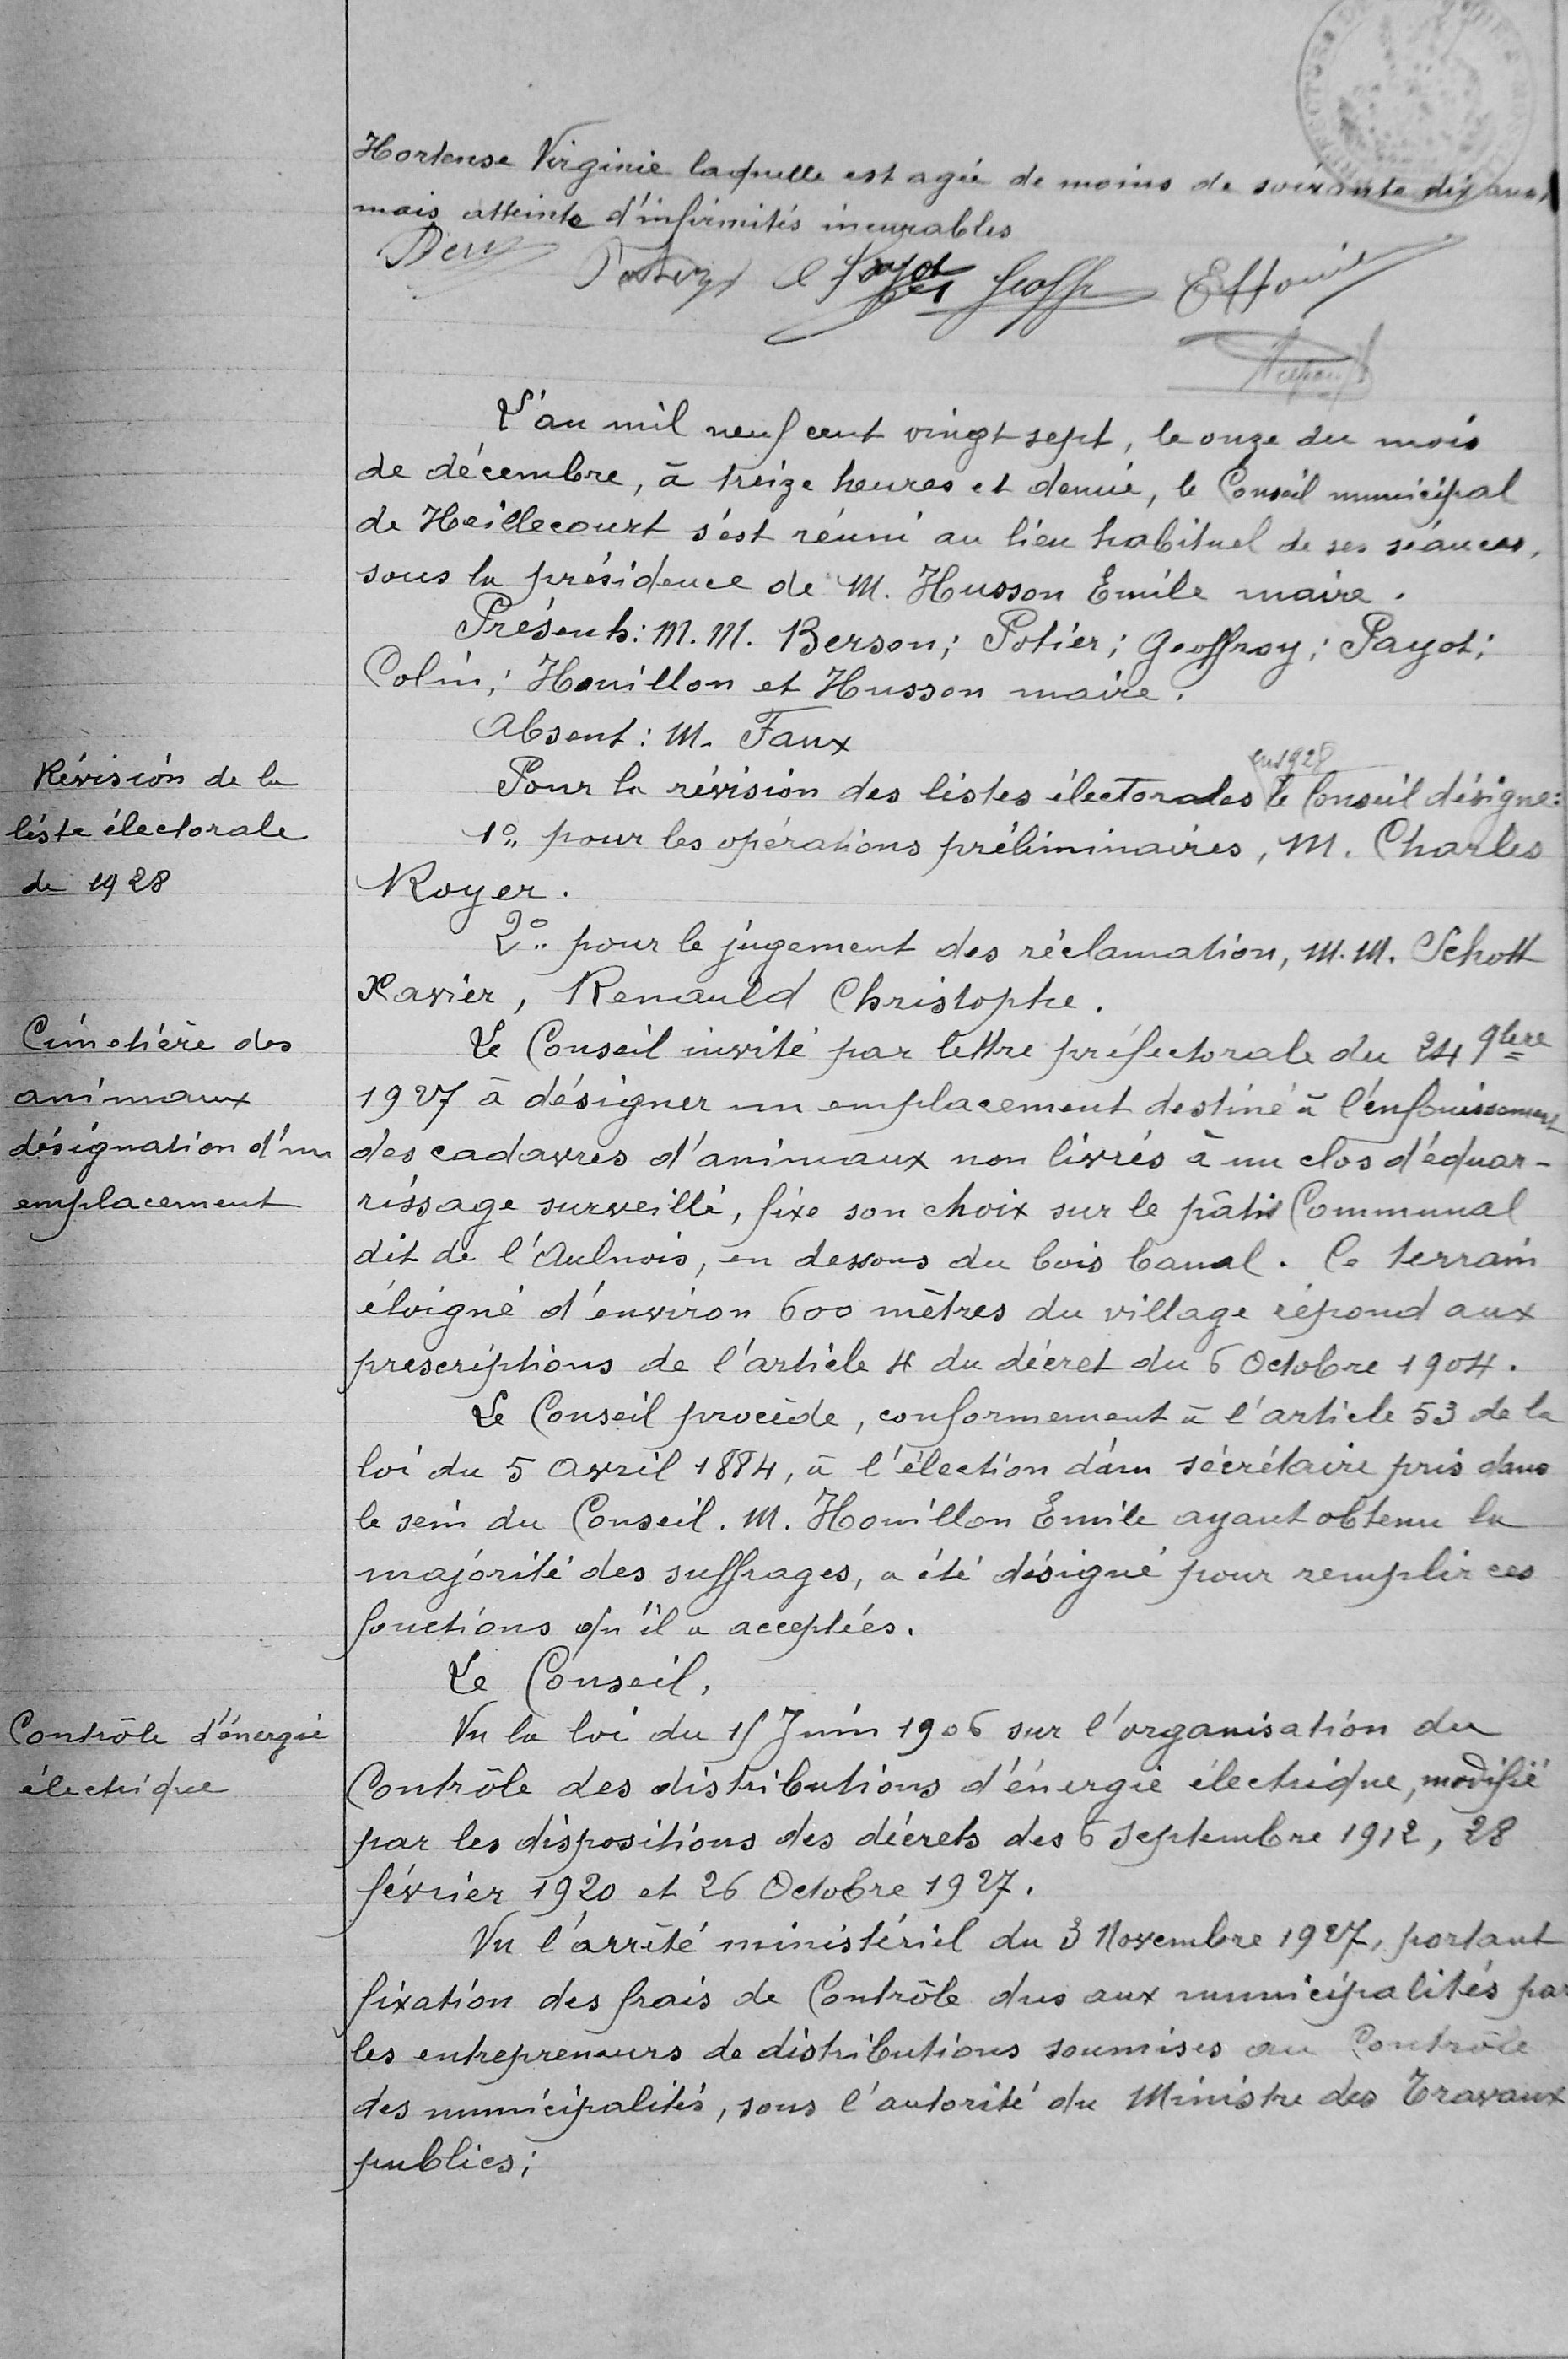 Hortense Virginie laquelle est agée de moins de soixante dix ans,
mais atteinte d'infirmités incurables
L'an mil neuf cent vingt sept, le onze du mois
de décembre, à treize heures et demie, le Conseil municipal
de Heillecourt s'est réuni au lieu habituel de ses séances,
sous la présidence de M. Husson Emile maire.
Présents: M.M. Berson; Potier; Geoffroy; Payot;
Colin; Houillon et Husson maire.
Absent: M. Faux
Révision de la
liste électorale
de 1928
en 1928
Pour la révision des listes électorales le Conseil désigne:
1° pour les opérations préliminaires, M. Charles
Royer.
2° pour le jugement des réclamation, M.M. Schott
Xavier, Renauld Christophe.
Cimetière des
animaux
désignation d'un
emplacement
Le Conseil invité par lettre préfectorale du 24 9bre
1927 à désigner un emplacement destiné à l'enfouissement
des cadavres d'animaux non livrés à un clos d'équar-
rissage surveillé, fixe son choix sur le pâtis Communal
dit de l'Aulnois, en dessous du bois banal. Ce terrain
éloigné d'environ 600 mètres du village répond aux
prescriptions de l'article 4 du décret du 6 Octobre 1904.
Le Conseil procède, conformement à l'article 53 de la
loi du 5 Avril 1884, à l'élection d'un sécrétaire pris dans
le sein du Conseil. M. Houillon Emile ayant obtenu la
majorité des suffrages, a été désigné pour remplir ces
fonctions qu'il a acceptées.
Le Conseil,
Contrôle d'énergie
électrique
Vu la loi du 15 Juin 1906 sur l'organisation du
Contrôle des distributions d'énergie électrique, modifié
par les dispositions des décrets des 6 Septembre 1912, 28
février 1920 et 26 Octobre 1927.
Vu l'arrêté ministériel du 3 Novembre 1927, portant
fixation des frais de Contrôle dus aux municipalités par
les entrepreneurs de distributions soumises au Contrôle
des municipalités, sous l'autorité du Ministre des Travaux
publics;